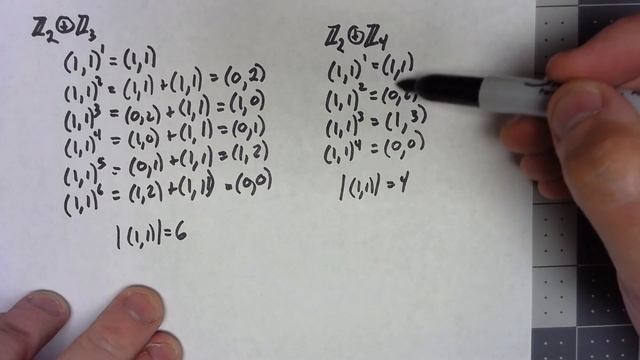 ℤ₂⊕ℤ₃
(1,1)¹ = (1,1)
(1,1)² = (1,1)+(1,1) = (0,2)
(1,1)³ = (0,2)+(1,1) = (1,0)
(1,1)⁴ = (1,0)+(1,1) = (0,1)
(1,1)⁵ = (0,1)+(1,1) = (1,2)
(1,1)⁶ = (1,2)+(1,1) = (0,0)
|(1,1)|=6
ℤ₂⊕ℤ₄
(1,1)¹ = (1,1)
(1,1)² = (0,
(1,1)³ = (1,3)
(1,1)⁴ = (0,0)
|(1,1)| = 4